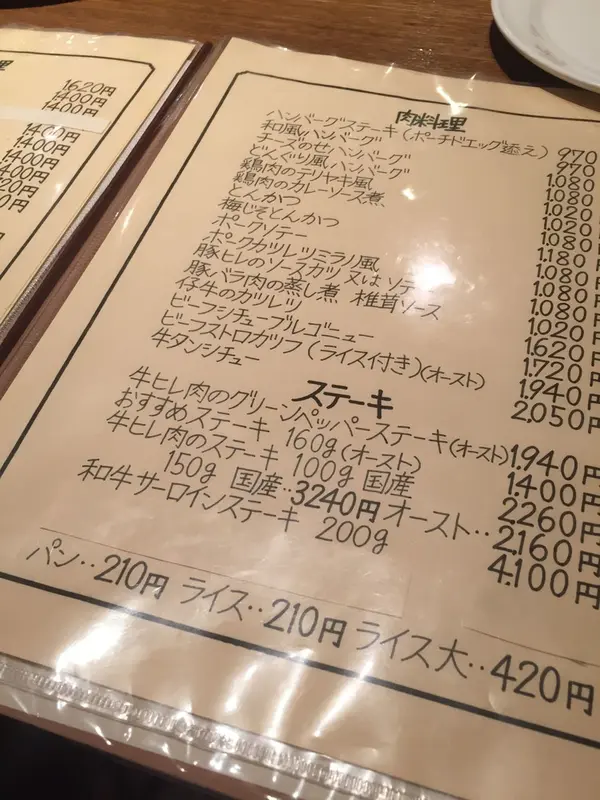 理
1620円
1400円
1400円
1400円
1400円
1400円
肉料理
ハンバーグステーキ (ポーチドエッグ添え)
和風ハンバーグ
チーズのせハンバーグ
どんぐり風ハンバーグ
鶏肉のテリヤキ風
鶏肉のカレーソース煮
とんかつ
梅じそとんかつ
ポークソテー
ポークカツレツミラノ風
豚ヒレのソースカツ 又は ソテー
豚バラ肉の蒸し煮 椎茸ソース
仔牛のカツレツ
ビーフシチューブルゴーニュー
ビーフストロガノフ (ライス付き)(オースト)
牛タンシチュー
970
970
1.080
1.080
1.020
1.020
1.180円
1.080円
1.080円
1.080円
1.020円
1.620円
1.720円
1.940円
2.050円
ステーキ
牛ヒレ肉のグリーンペッパーステーキ(オースト) 1.940円
おすすめステーキ 160g (オースト) 1.400円
牛ヒレ肉のステーキ 100g 国産 2.260円
150g 国産‥3240円 オースト‥2.160円
和牛サーロインステーキ 200g 4.100円
パン‥210円 ライス‥210円 ライス大‥420円